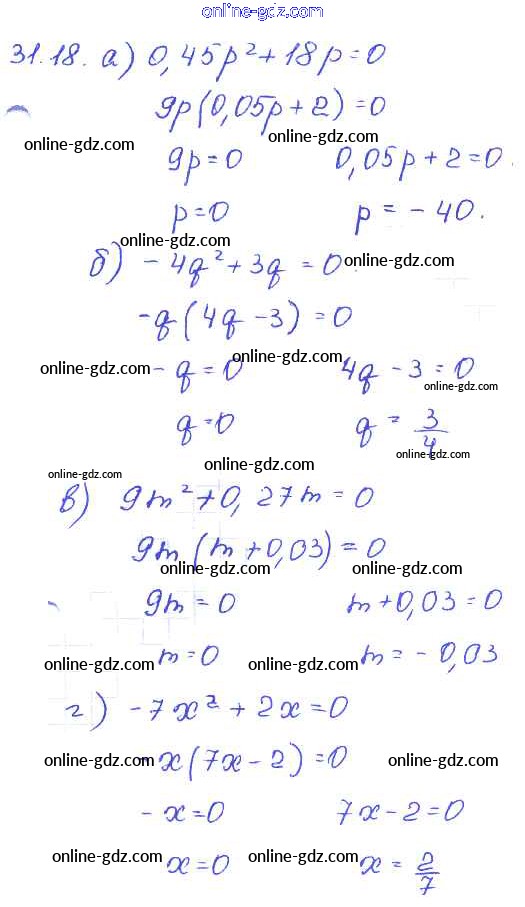 online-gdz.com
31.18. а) 0,45p² + 18p = 0
9p(0,05p + 2) = 0
online-gdz.com online-gdz.com
9p = 0 0,05p + 2 = 0.
p = 0 p = - 40.
online-gdz.com online-gdz.com
б) - 4q² + 3q = 0.
-q(4q - 3) = 0
online-gdz.com online-gdz.com
- q = 0 4q - 3 = 0
online-gdz.com
q = 0 q = 3/4
online-gdz.com
online-gdz.com online-gdz.com
в) 9m² + 0,27m = 0
9m(m + 0,03) = 0
online-gdz.com online-gdz.com
9m = 0 m + 0,03 = 0
m = 0 m = - 0,03
online-gdz.com online-gdz.com
г) - 7x² + 2x = 0
online-gdz.com online-gdz.com
- x(7x - 2) = 0
- x = 0 7x - 2 = 0
online-gdz.com online-gdz.com
x = 0 x = 2/7